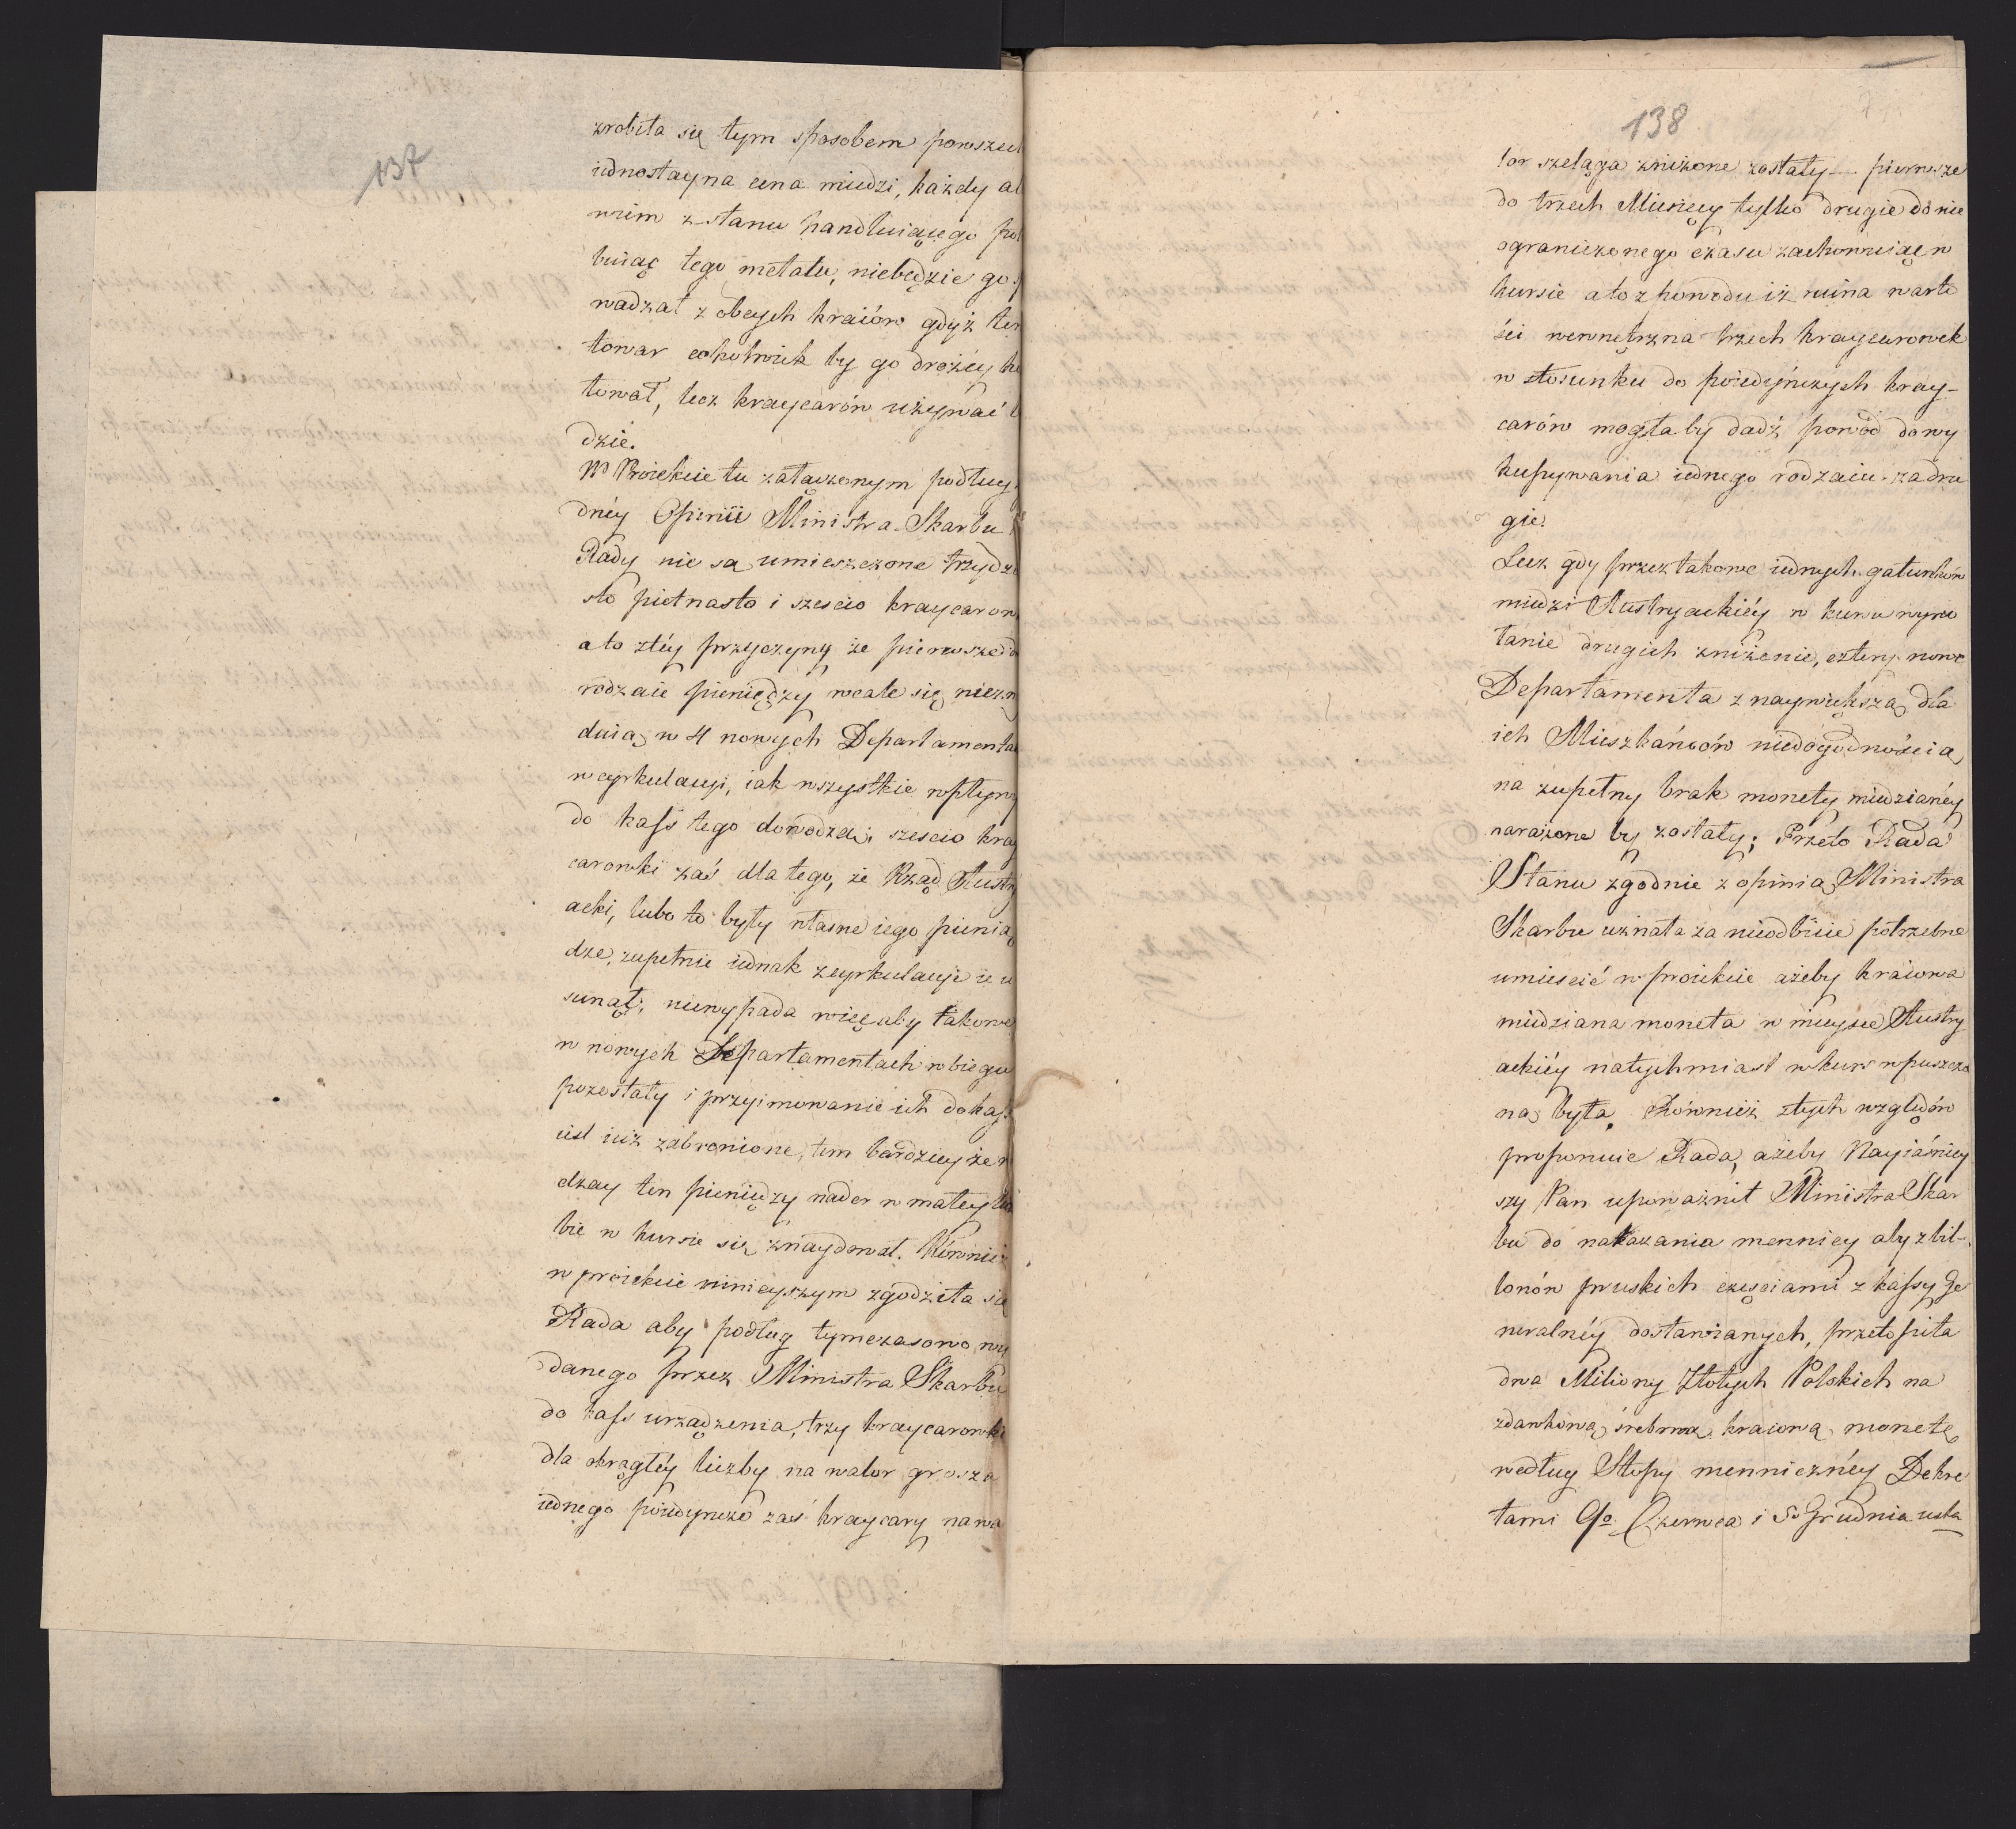 137
zrobiła się tym sposobem powszech
iednostayna cena miedzi, każdy al
wiem z stanu handluiącego pot
buiąc tego metalu, niebędzie go s
wadzał z obcych kraiów gdyż ten
towar cokolwiek by go drożéy ko
tował, lecz kraycarów używać b
dzie.
W Proiekcie tu załączonym podług
dnéy Opinii Ministra Skarbu
Rady nie są umieszczone trzydzi
sto pietnasto i szescio kraycarow
a to z téy przyczyny że pierwsze d
rodzaie pieniędzy wcale się niezn
duią w 4 nowych Departamenta
w cyrkulacyi, iak wszystkie wpływy
do kass tego dowodzą; szescio kray
carowki zaś dla tego, że Rząd Austry
acki, lubo to były własne iego pienią
dze, zupełnie iednak z cyrkulacyi ie u
sunął; niewypada więc aby takowe
w nowych Departamentach w biegu
pozostały i przyimowanie ich do kass
iest iuż zabronione, tem bardziey że r
dzay ten pieniędzy nader w małey licz
bie w kursie się znaydował. Równie
w proiekcie ninieyszym zgodziła się
Rada aby podług tymczasowo wy
danego przez Ministra Skarbu
do kass urządzenia, trzy kraycarowki
dla okrągłéy liczby na walor grosza
iednego poiedyncze zaś kraycary na wa
138
lor szeląga zniżone zostały — pierwsze
do trzech Miesięcy tylko drugie do nie
ograniczonego czasu zachowuiąc w
kursie a to z powodu iż rożna warto
ści wewnętrzna trzech kraycarowek
w stosunku do poiedyńczych kray-
carów mogłaby dadź powód do wy
kupywania iednego rodzaiu za dru
gie.
Lecz gdy przez takowe iednych gatunków
miedzi Austryackiéy w kursu wywo
łanie drugich zniżenie, cztery nowe
Departamenta z naywiększą dla
ich Mieszkańców niedogodnością
na zupełny brak monety miedzianéy
narażone by zostały; Przeto Rada
Stanu zgodnie z opinią Ministra
Skarbu uznała za nieodbicie potrzebne
umieścić w proiekcie ażeby kraiowa
miedziana moneta w mieysce Austry
ackiéy natychmiast w kurs wpuszczo
ną była. Również z tych względów
proponuie Rada, ażeby Nayiaśniey
szy Pan upoważnił Ministra Skar
bu do nakazania mennicy aby z bil-
lonów pruskich częściami z kassy Ge
neralnéy dostawianych, przetopiła
dwa Miliony Złotych Polskich na
zdawkową srebrną kraiową monetę,
według Stopy menniczńey Dekre
tami 9o. Czerwca i 5o Grudnia usta